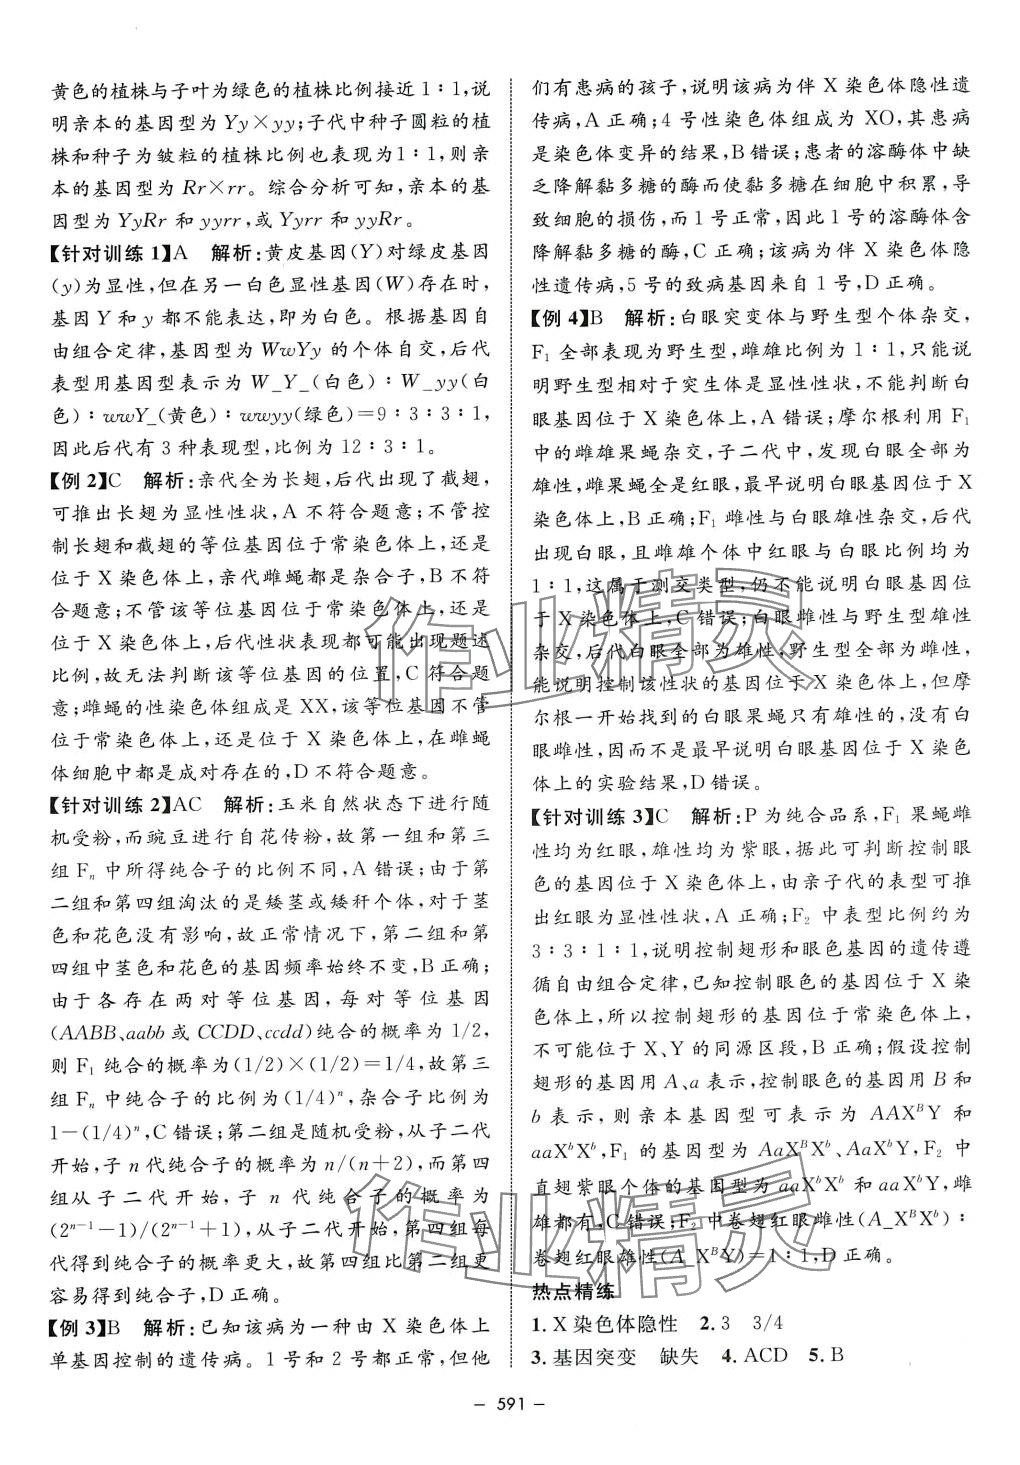 黄色的植株与子叶为绿色的植株比例接近1∶1,说
明亲本的基因型为Yy×yy;子代中种子圆粒的植
株和种子为皱粒的植株比例也表现为1∶1,则亲
本的基因型为Rr×rr。综合分析可知,亲本的基
因型为YyRr和yyrr,或Yyrr和yyRr。
【针对训练1】A 解析:黄皮基因(Y)对绿皮基因
(y)为显性,但在另一白色显性基因(W)存在时,
基因Y和y都不能表达,即为白色。根据基因自
由组合定律,基因型为WwYy的个体自交,后代
表型用基因型表示为W_Y_(白色)∶W_yy(白
色)∶wwY_(黄色)∶wwyy(绿色)=9∶3∶3∶1,
因此后代有3种表现型,比例为12∶3∶1。
【例2】C 解析:亲代全为长翅,后代出现了截翅,
可推出长翅为显性性状,A不符合题意;不管控
制长翅和截翅的等位基因位于常染色体上,还是
位于X染色体上,亲代雌蝇都是杂合子,B不符
合题意;不管该等位基因位于常染色体上,还是
位于X染色体上,后代性状表现都可能出现题述
比例,故无法判断该等位基因的位置,C符合题
意;雌蝇的性染色体组成是XX,该等位基因不管
位于常染色体上,还是位于X染色体上,在雌蝇
体细胞中都是成对存在的,D不符合题意。
【针对训练2】AC 解析:玉米自然状态下进行随
机受粉,而豌豆进行自花传粉,故第一组和第三
组Fₙ中所得纯合子的比例不同,A错误;由于第
二组和第四组淘汰的是矮茎或矮秆个体,对于茎
色和花色没有影响,故正常情况下,第二组和第
四组中茎色和花色的基因频率始终不变,B正确;
由于各存在两对等位基因,每对等位基因
(AABB、aabb或CCDD、ccdd)纯合的概率为1/2,
则F₁纯合的概率为(1/2)×(1/2)=1/4,故第三
组Fₙ中纯合子的比例为(1/4)ⁿ,杂合子比例为
1-(1/4)ⁿ,C错误;第二组是随机受粉,从子二代
开始,子n代纯合子的概率为n/(n+2),而第四
组从子二代开始,子n代纯合子的概率为
(2ⁿ⁻¹-1)/(2ⁿ⁻¹+1),从子二代开始,第四组每
代得到纯合子的概率更大,故第四组比第二组更
容易得到纯合子,D正确。
【例3】B 解析:已知该病为一种由X染色体上
单基因控制的遗传病。1号和2号都正常,但他
们有患病的孩子,说明该病为伴X染色体隐性遗
传病,A正确;4号性染色体组成为XO,其患病
是染色体变异的结果,B错误;患者的溶酶体中缺
乏降解黏多糖的酶而使黏多糖在细胞中积累,导
致细胞的损伤,而1号正常,因此1号的溶酶体含
降解黏多糖的酶,C正确;该病为伴X染色体隐
性遗传病,5号的致病基因来自1号,D正确。
【例4】B 解析:白眼突变体与野生型个体杂交,
F₁全部表现为野生型,雌雄比例为1∶1,只能说
明野生型相对于突生体是显性性状,不能判断白
眼基因位于X染色体上,A错误;摩尔根利用F₁
中的雌雄果蝇杂交,子二代中,发现白眼全部为
雄性,雌果蝇全是红眼,最早说明白眼基因位于X
染色体上,B正确;F₁雌性与白眼雄性杂交,后代
出现白眼,且雌雄个体中红眼与白眼比例均为
1∶1,这属于测交类型,仍不能说明白眼基因位
于X染色体上,C错误;白眼雌性与野生型雄性
杂交,后代白眼全部为雄性,野生型全部为雌性,
能说明控制该性状的基因位于X染色体上,但摩
尔根一开始找到的白眼果蝇只有雄性的,没有白
眼雌性,因而不是最早说明白眼基因位于X染色
体上的实验结果,D错误。
【针对训练3】C 解析:P为纯合品系,F₁果蝇雌
性均为红眼,雄性均为紫眼,据此可判断控制眼
色的基因位于X染色体上,由亲子代的表型可推
出红眼为显性性状,A正确;F₂中表型比例约为
3∶3∶1∶1,说明控制翅形和眼色基因的遗传遵
循自由组合定律,已知控制眼色的基因位于X染
色体上,所以控制翅形的基因位于常染色体上,
不可能位于X、Y的同源区段,B正确;假设控制
翅形的基因用A、a表示,控制眼色的基因用B和
b表示,则亲本基因型可表示为AAXᴮY和
aaXᵇXᵇ,F₁的基因型为AaXᴮXᵇ、AaXᵇY,F₂中
直翅紫眼个体的基因型为aaXᵇXᵇ和aaXᵇY,雌
雄都有,C错误;F₂中卷翅红眼雌性(A_XᴮXᵇ)∶
卷翅红眼雄性(A_XᴮY)=1∶1,D正确。
热点精练
1.X染色体隐性 2.3 3/4
3.基因突变 缺失 4.ACD 5.B
- 591 -
作业精灵
作业精灵